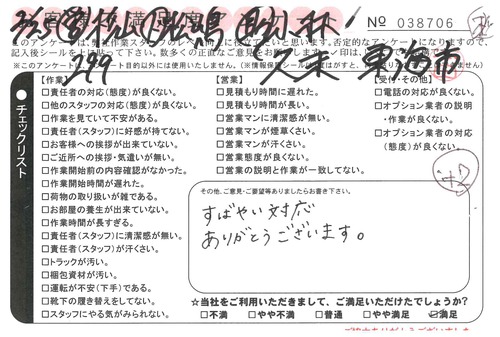 No 038706
このアンケートは、弊社作業スタッフのレベル向上に役立てたいと思います。否定的なアンケートになりますので、
【作業】
□責任者の対応(態度)が良くない。
□他のスタッフの対応(態度)が良くない。
□作業を見ていて不安がある。
□責任者(スタッフ)に好感が持てない。
□お客様への挨拶が出来ていない。
□ご近所への挨拶・気遣いが無い。
□作業開始前の内容確認がなかった。
□作業開始時間が遅れた。
□荷物の取り扱いが雑である。
□お部屋の養生が出来ていない。
□作業時間が長すぎる。
□責任者(スタッフ)に清潔感が無い。
□責任者(スタッフ)が汗くさい。
□トラックが汚い。
□梱包資材が汚い。
□運転が不安(下手)である。
□靴下の履き替えをしてない。
□スタッフにやる気がみられない。
チェックリスト
【営業】
□見積もり時間に遅れた。
□見積もり時間が長い。
□営業マンに清潔感が無い。
□営業マンが煙草くさい。
□営業マンが汗くさい。
□営業態度が良くない。
□営業の説明と作業が一致してない。
【受付・その他】
□電話の対応が良くない。
□オプション業者の説明
・作業が良くない。
□オプション業者の対応
(態度)が良くない。
その他、ご意見・ご要望等ありましたらお書き下さい。
すばやい対応
ありがとうございます。
☆当社をご利用いただきまして、ご満足いただけたでしょうか?
□不満 □やや不満 □普通 □やや満足 ☑満足